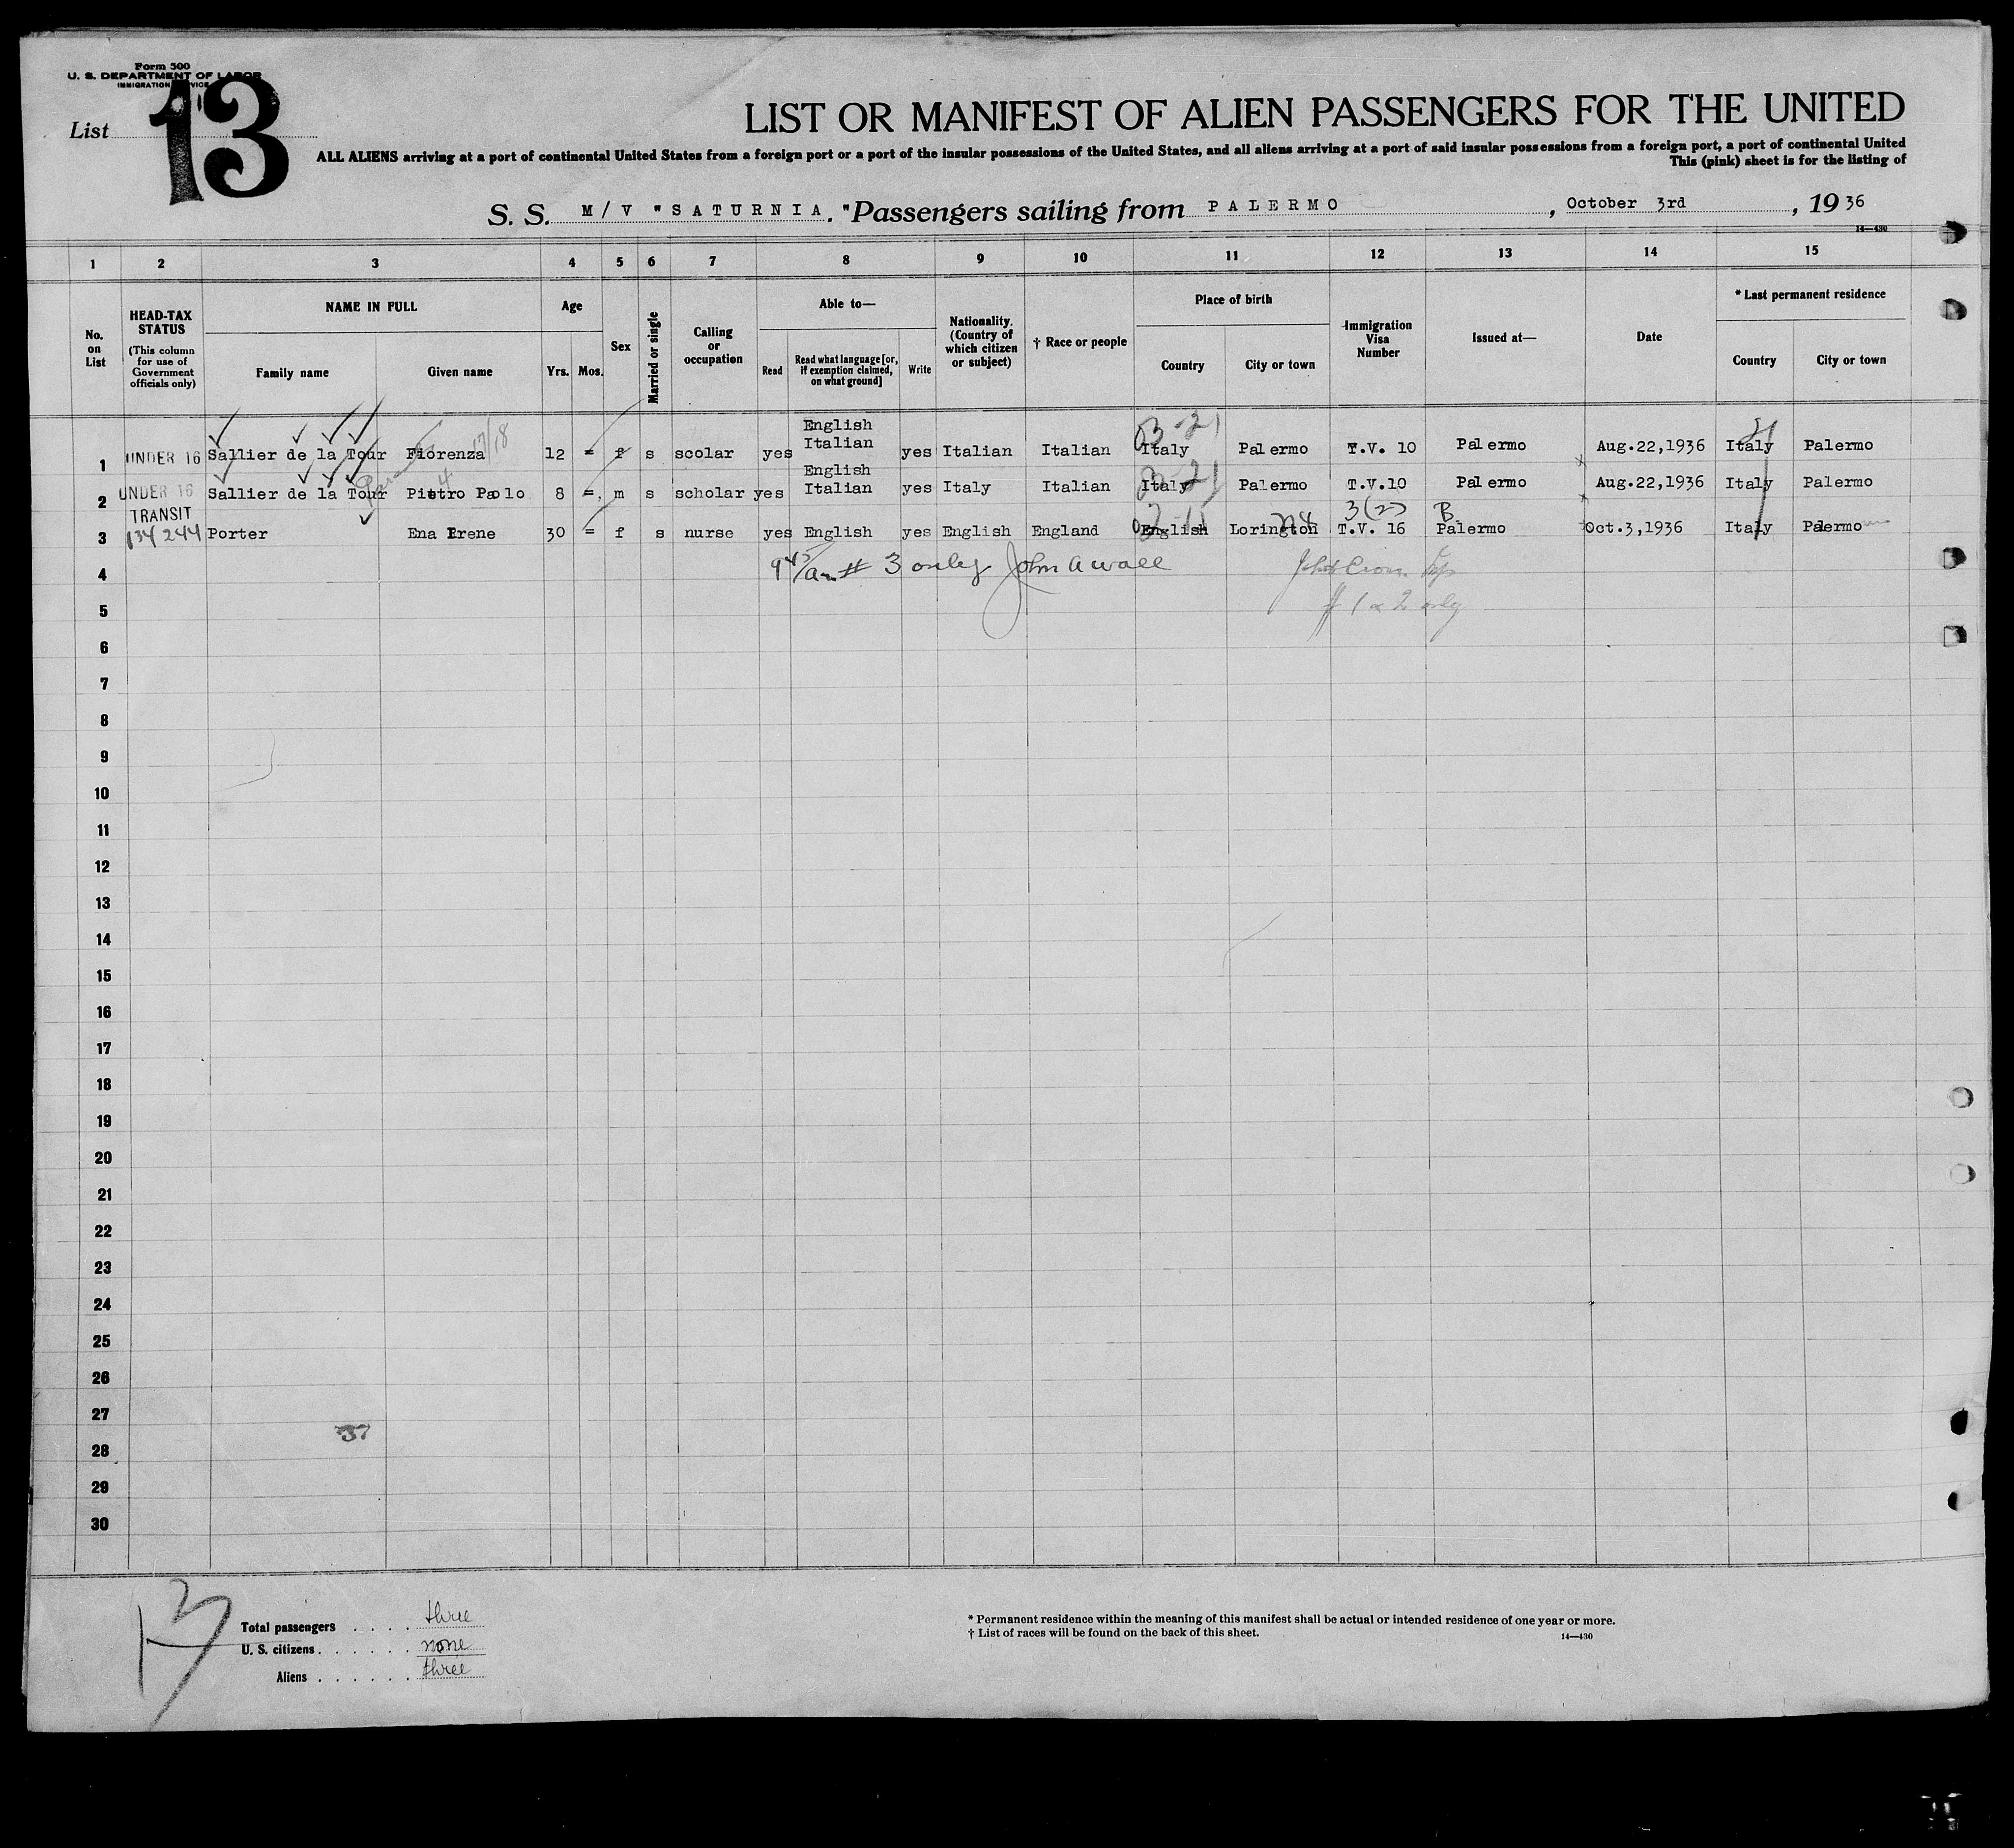 Form 500
U. S. DEPARTMENT OF LABOR
IMMIGRATION SERVICE
List 13
LIST OR MANIFEST OF ALIEN PASSENGERS FOR THE UNITED
ALL ALIENS arriving at a port of continental United States from a foreign port or a port of the insular possessions of the United States, and all aliens arriving at a port of said insular possessions from a foreign port, a port of continental United
This (pink) sheet is for the listing of
S. S. M/V "SATURNIA." Passengers sailing from PALERMO, October 3rd, 1936
14—430
1 2 3 4 5 6 7 8 9 10 11 12 13 14 15
No. on List
HEAD-TAX STATUS (This column for use of Government officials only)
NAME IN FULL
Family name Given name
Age
Yrs. Mos.
Sex
Married or single
Calling or occupation
Able to—
Read
Read what language [or, if exemption claimed, on what ground]
Write
Nationality. (Country of which citizen or subject)
† Race or people
Place of birth
Country City or town
Immigration Visa Number
Issued at—
Date
* Last permanent residence
Country City or town
03-21
17/18
English
1 UNDER 16 Sallier de la Tour Fiorenza 12 = f s scolar yes Italian yes Italian Italian Italy Palermo T.V. 10 Palermo Aug.22,1936 Italy Palermo
English
2 UNDER 16 Sallier de la Tour Pietro Paolo 8 = m s scholar yes Italian yes Italy Italian Italy Palermo T.V.10 Palermo Aug.22,1936 Italy Palermo
TRANSIT 3(2) B
3 134244 Porter Ena Irene 30 = f s nurse yes English yes English England English Lorington T.V. 16 Palermo Oct.3,1936 Italy Palermo
4 9 45/am # 3 only John A Wall
# 1 & 2 only
5
6
7
8
9
10
11
12
13
14
15
16
17
18
19
20
21
22
23
24
25
26
27
37
28
29
30
13
Total passengers . . . . three
U. S. citizens . . . . . . none
Aliens . . . . . . three
* Permanent residence within the meaning of this manifest shall be actual or intended residence of one year or more.
† List of races will be found on the back of this sheet.
14—430